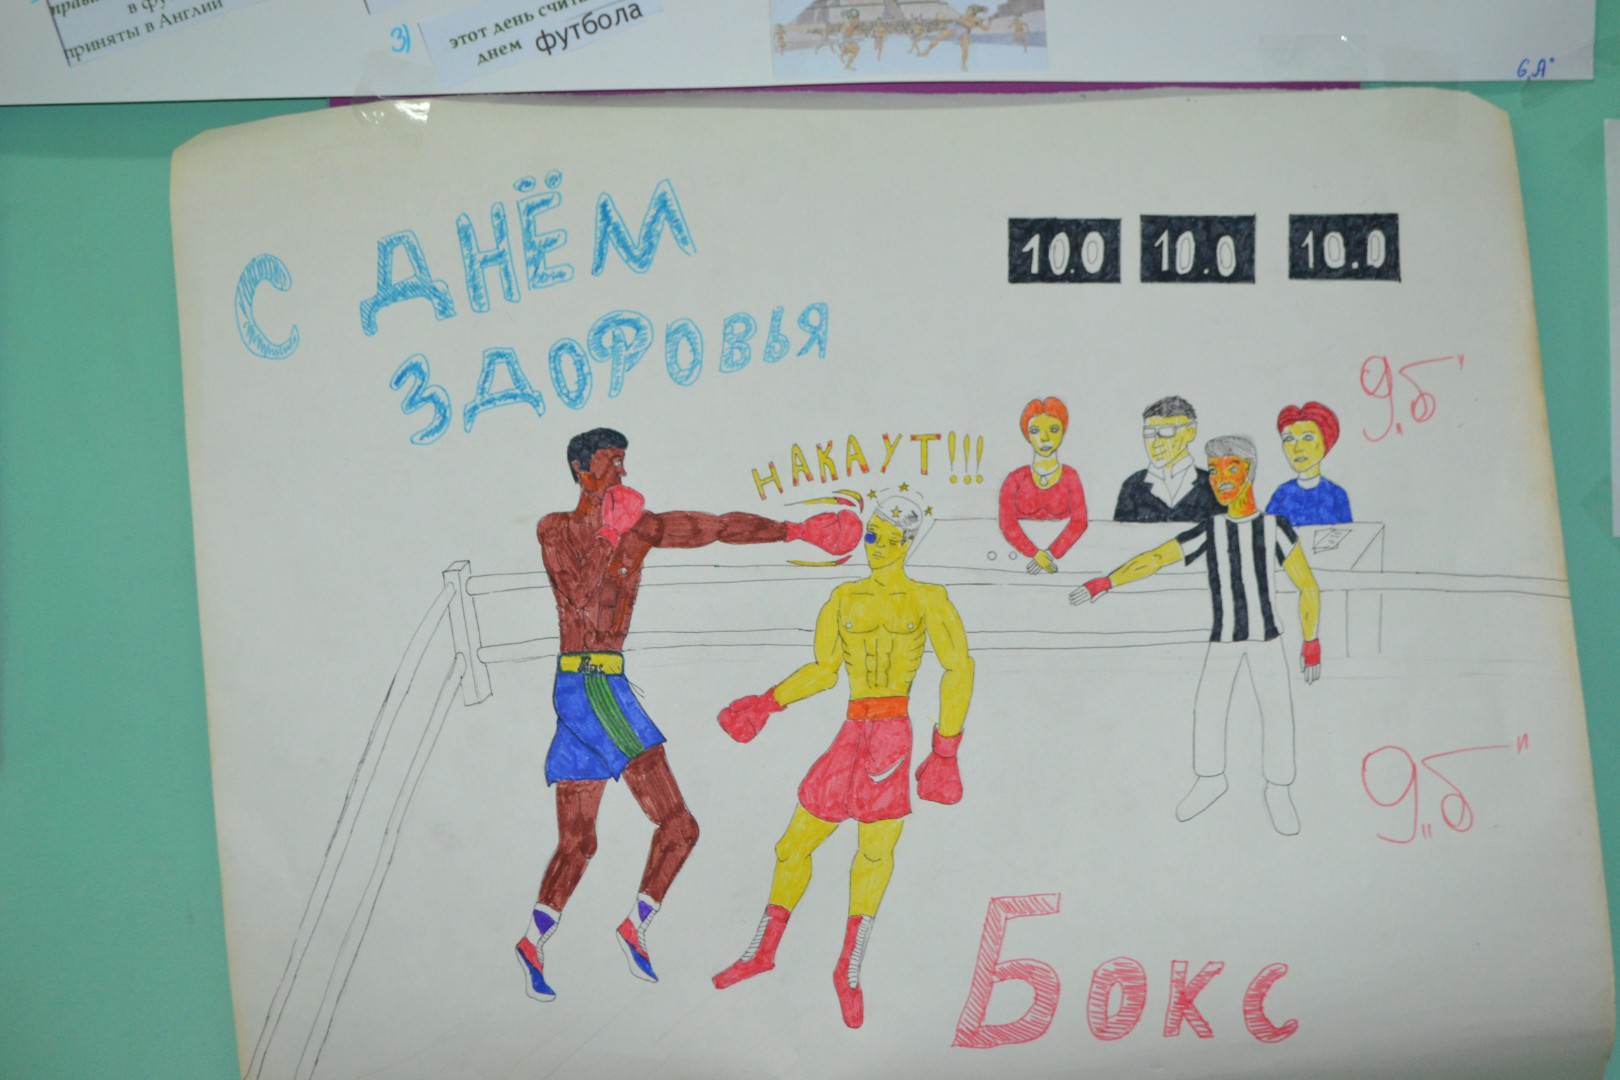 в фу
приняты в Англии
3)
этот день счит
днем футбола
6"А"
С ДНЁМ
ЗДОРОВЬЯ
10.0 10.0 10.0
9„б"
НАКАУТ!!!
9„б"
Бокс